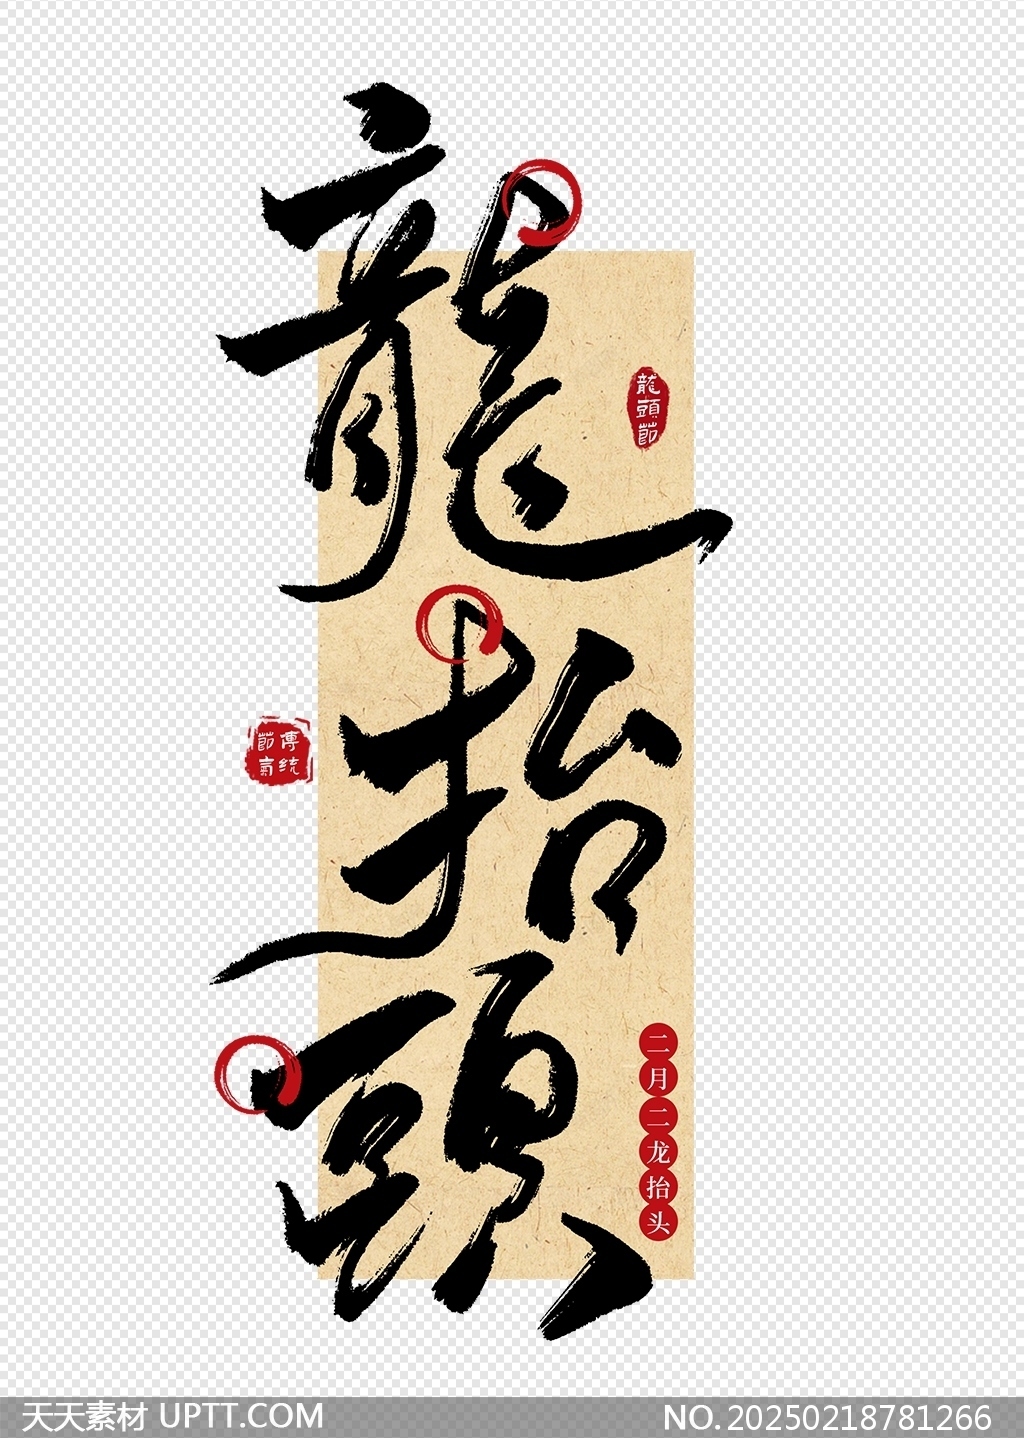 龍抬頭
龍頭節
傳統
節氣
二月二龙抬头
天天素材 UPTT.COM
NO.20250218781266